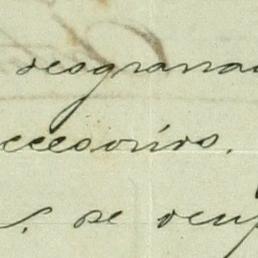 desgrana
ccesorios.
s. se ocup